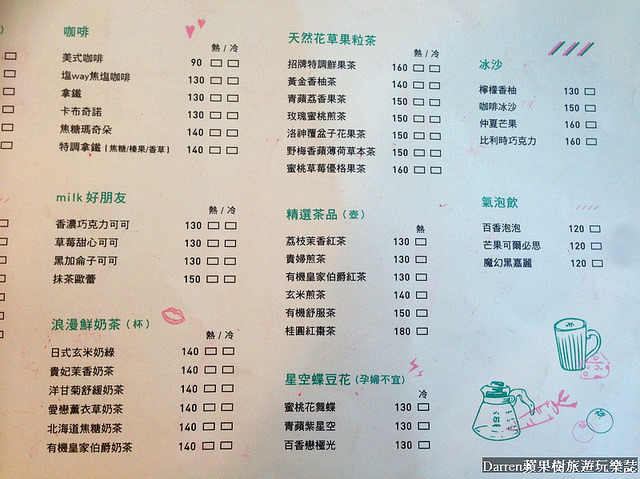 咖啡
熱 / 冷
美式咖啡 90
塩way焦塩咖啡 130
拿鐵 130
卡布奇諾 130
焦糖瑪奇朵 140
特調拿鐵 (焦糖/榛果/香草) 140
milk 好朋友
熱 / 冷
香濃巧克力可可 130
草莓甜心可可 130
黑加侖子可可 130
抹茶歐蕾 150
浪漫鮮奶茶 (杯)
熱 / 冷
日式玄米奶綠 140
貴妃茉香奶茶 140
洋甘菊舒緩奶茶 140
愛戀薰衣草奶茶 140
北海道焦糖奶茶 140
有機皇家伯爵奶茶 140
天然花草果粒茶
熱 / 冷
招牌特調鮮果茶 160
黃金香柚茶 140
青蘋荔香果茶 150
玫瑰蜜桃煎茶 150
洛神覆盆子花果茶 150
野梅香蘋薄荷草本茶 150
蜜桃草莓優格果茶 160
精選茶品 (壺)
熱
荔枝茉香紅茶 130
貴婦煎茶 130
有機皇家伯爵紅茶 130
玄米煎茶 140
有機舒服茶 150
桂圓紅棗茶 180
星空蝶豆花 (孕婦不宜)
冷
蜜桃花舞蝶 130
青蘋紫星空 130
百香戀極光 130
冰沙
檸檬香柚 130
咖啡冰沙 150
仲夏芒果 160
比利時巧克力 160
氣泡飲
百香泡泡 120
芒果可爾必思 120
魔幻黑嘉麗 120
Darren蘋果樹旅遊玩樂誌